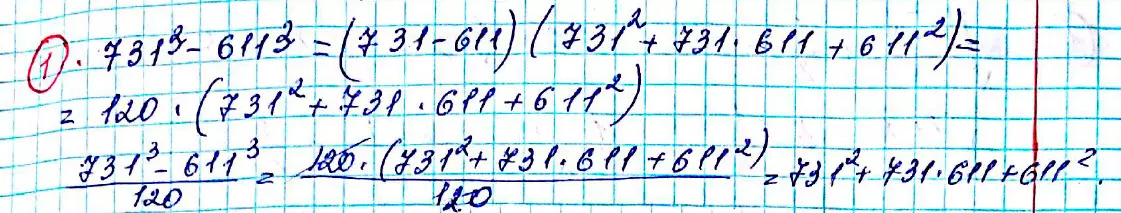 1. 731³ - 611³ = (731 - 611) (731² + 731 · 611 + 611²) =
= 120 · (731² + 731 · 611 + 611²)
(731³ - 611³)/120 = (120 · (731² + 731 · 611 + 611²))/120 = 731² + 731 · 611 + 611².